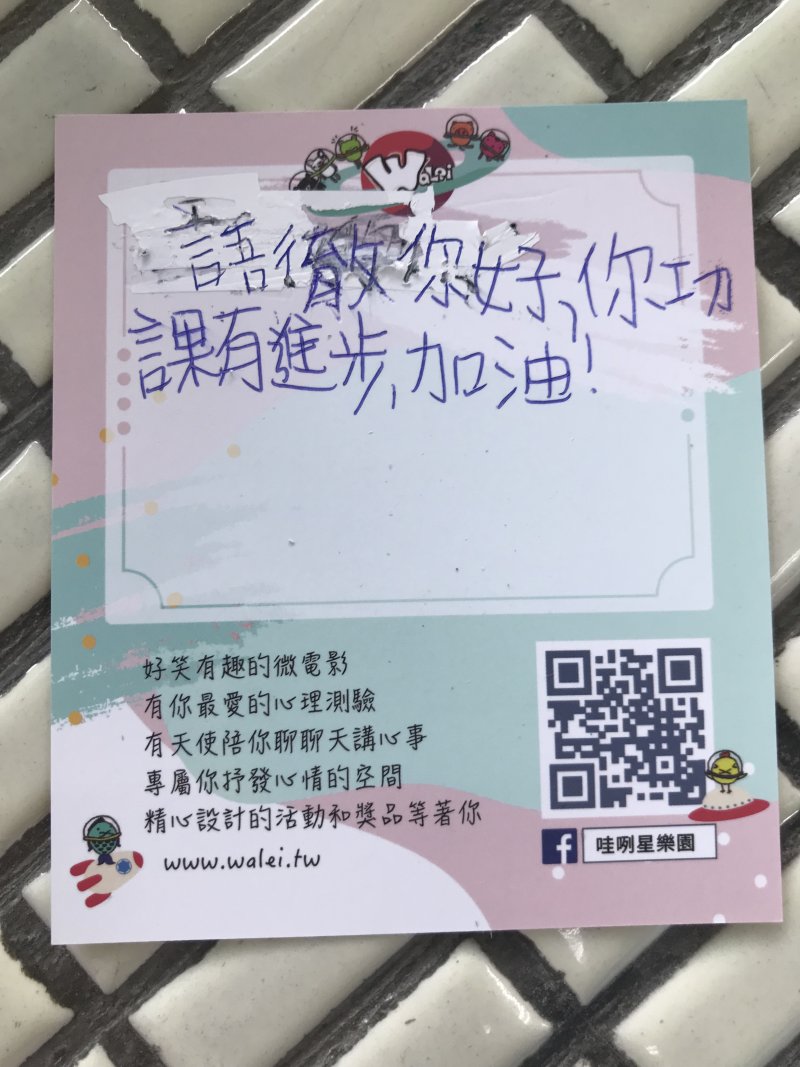 Walei
語徹你好,你功
課有進步,加油!
好笑有趣的微電影
有你最愛的心理測驗
有天使陪你聊聊天講心事
專屬你抒發心情的空間
精心設計的活動和獎品等著你
www.walei.tw
哇咧星樂園